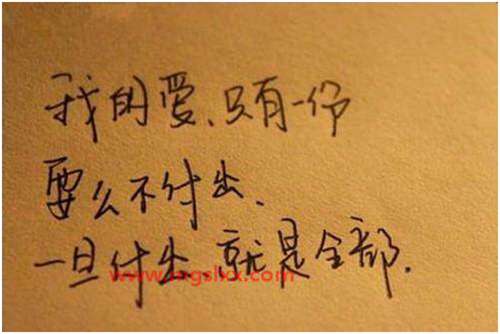 我的爱、只有一份
要么不付出、
一旦付出 就是全部.